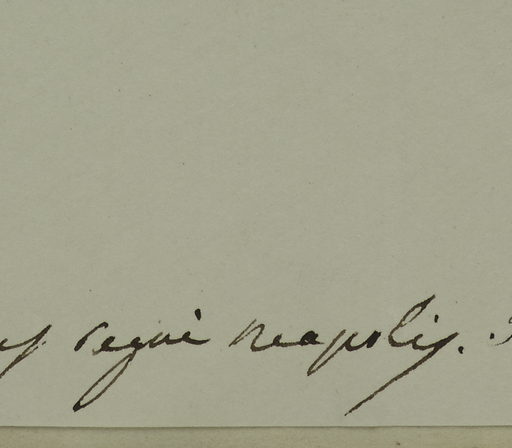 regni neapolis.